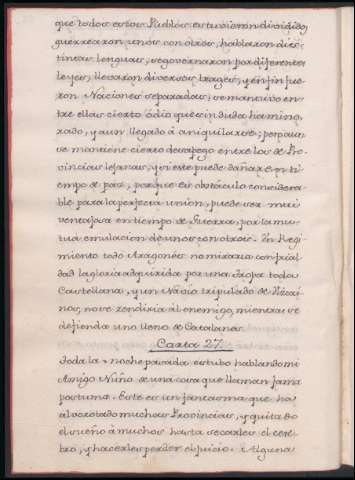 que todos estos Pueblos estuvieron divididos,
guerrearon unos con otros, hablaron dis-
tintas lenguas, se governaron por diferentes
leyes, llevaron diversos trages, y en fin fue-
ron Naciones separadas, se mantuvo en-
tre ellas cierto ódio que sin duda ha mino-
rado, y aun llegado á aniquilarse; pero aun
se mantiene cierto desapego entre los de Pro-
vincias lejanas, y si este puede dañar en ti-
empo de paz, porque es obstáculo considera-
ble para la perfecta union, puede ser mui
ventajoso en tiempo de Guerra por la mu-
tua emulacion de unos con otros. Un Regi-
miento todo Aragonés no miraria con frial-
dad la gloria adquirida por una Tropa toda
Castellana, y un Navio tripulado de Vizcai-
nos, no se rendiria al enemigo, mientras se
defienda uno lleno de Catalanes.
Carta 27.
Toda la noche pasada estubo hablando mi
Amigo Nuño de una cosa que llaman fama
postuma. Este es un fantasma que ha
alborotado muchas Provincias, y quitado
el sueño á muchos hasta secarles el cere-
bro, y hacerles perder el juicio. Alguna